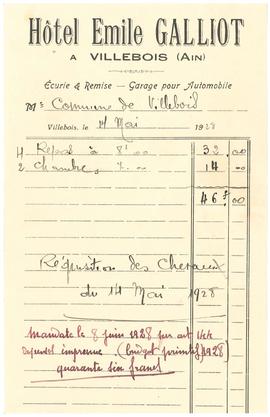 Hôtel Emile GALLIOT
A VILLEBOIS (AIN)
Écurie & Remise — Garage pour Automobile
Ms Commune de Villebois
Villebois, le 14 Mai 1928
4 Repas à 8f 00 32 00
2 Chambres 7.00 14 00
46f 00
Réquisition des Chevaux
du 14 Mai 1928
Mandaté le 8 juin 1928 par art
dépenses imprévues (budget primitif 1928)
quarante six francs